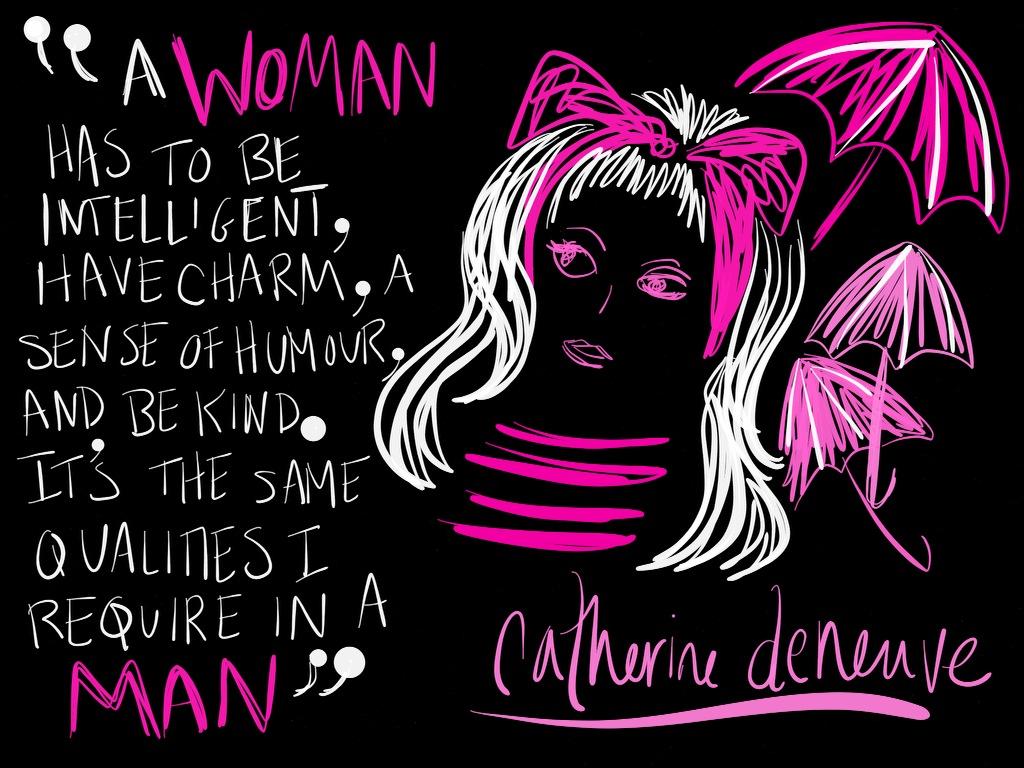 “A WOMAN
HAS TO BE
INTELLIGENT,
HAVE CHARM, A
SENSE OF HUMOUR,
AND BE KIND.
IT'S THE SAME
QUALITIES I
REQUIRE IN A
MAN”
catherine deneuve